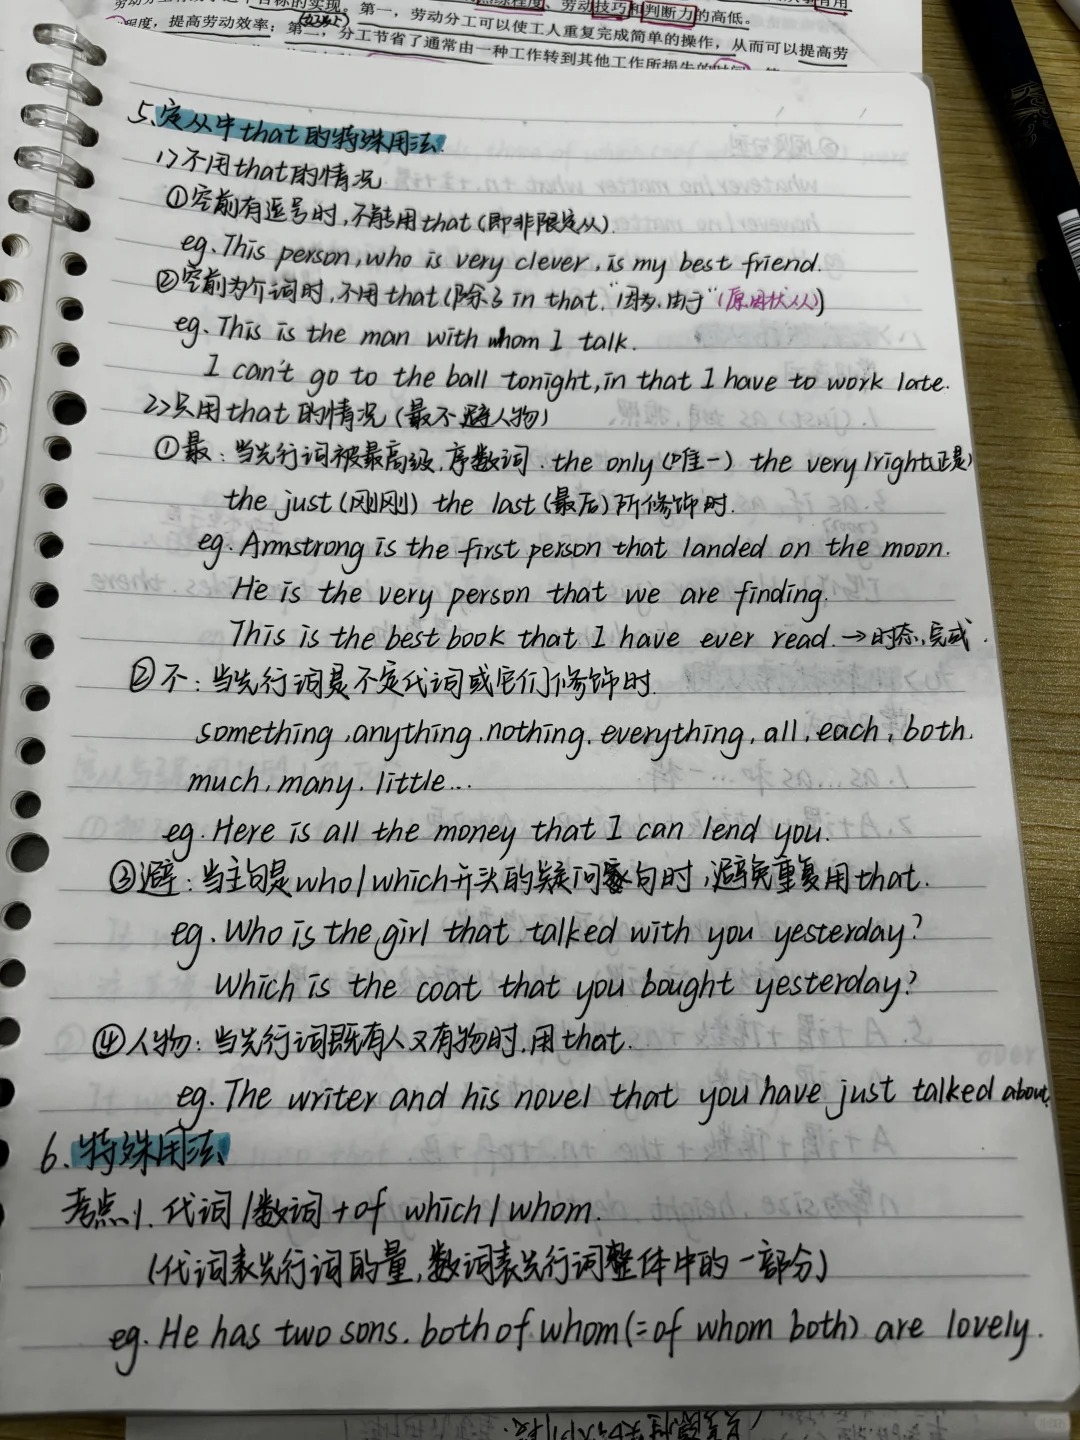 劳动技巧和判断力的高低。
第一，劳动分工可以使工人重复完成简单的操作，从而可以提高劳
提高劳动效率；第二，分工节省了通常由一种工作转到其他工作所损失的时间
5、定从中that的特殊用法
1>不用that的情况
①空前有逗号时,不能用that(即非限定从)
eg. This person, who is very clever, is my best friend.
②空前为介词时,不用that(除了in that."因为,由于"(原因状从))
eg. This is the man with whom I talk.
I can't go to the ball tonight, in that I have to work late.
2>只用that的情况(最不避人物)
①最:当先行词被最高级,序数词. the only(唯一) the very/right(正是)
the just(刚刚) the last(最后)所修饰时.
eg. Armstrong is the first person that landed on the moon.
He is the very person that we are finding.
This is the best book that I have ever read.→时态,完成.
②不:当先行词是不定代词或它们修饰时
something, anything, nothing, everything, all, each, both,
much, many, little...
eg. Here is all the money that I can lend you.
③避:当主句是who/which开头的疑问句时,避免重复用that.
eg. Who is the girl that talked with you yesterday?
Which is the coat that you bought yesterday?
④人物:当先行词既有人又有物时,用that.
eg. The writer and his novel that you have just talked about.
6. 特殊用法
考点1. 代词/数词+of which/whom.
(代词表先行词的量,数词表先行词整体中的一部分)
eg. He has two sons. both of whom(=of whom both) are lovely.